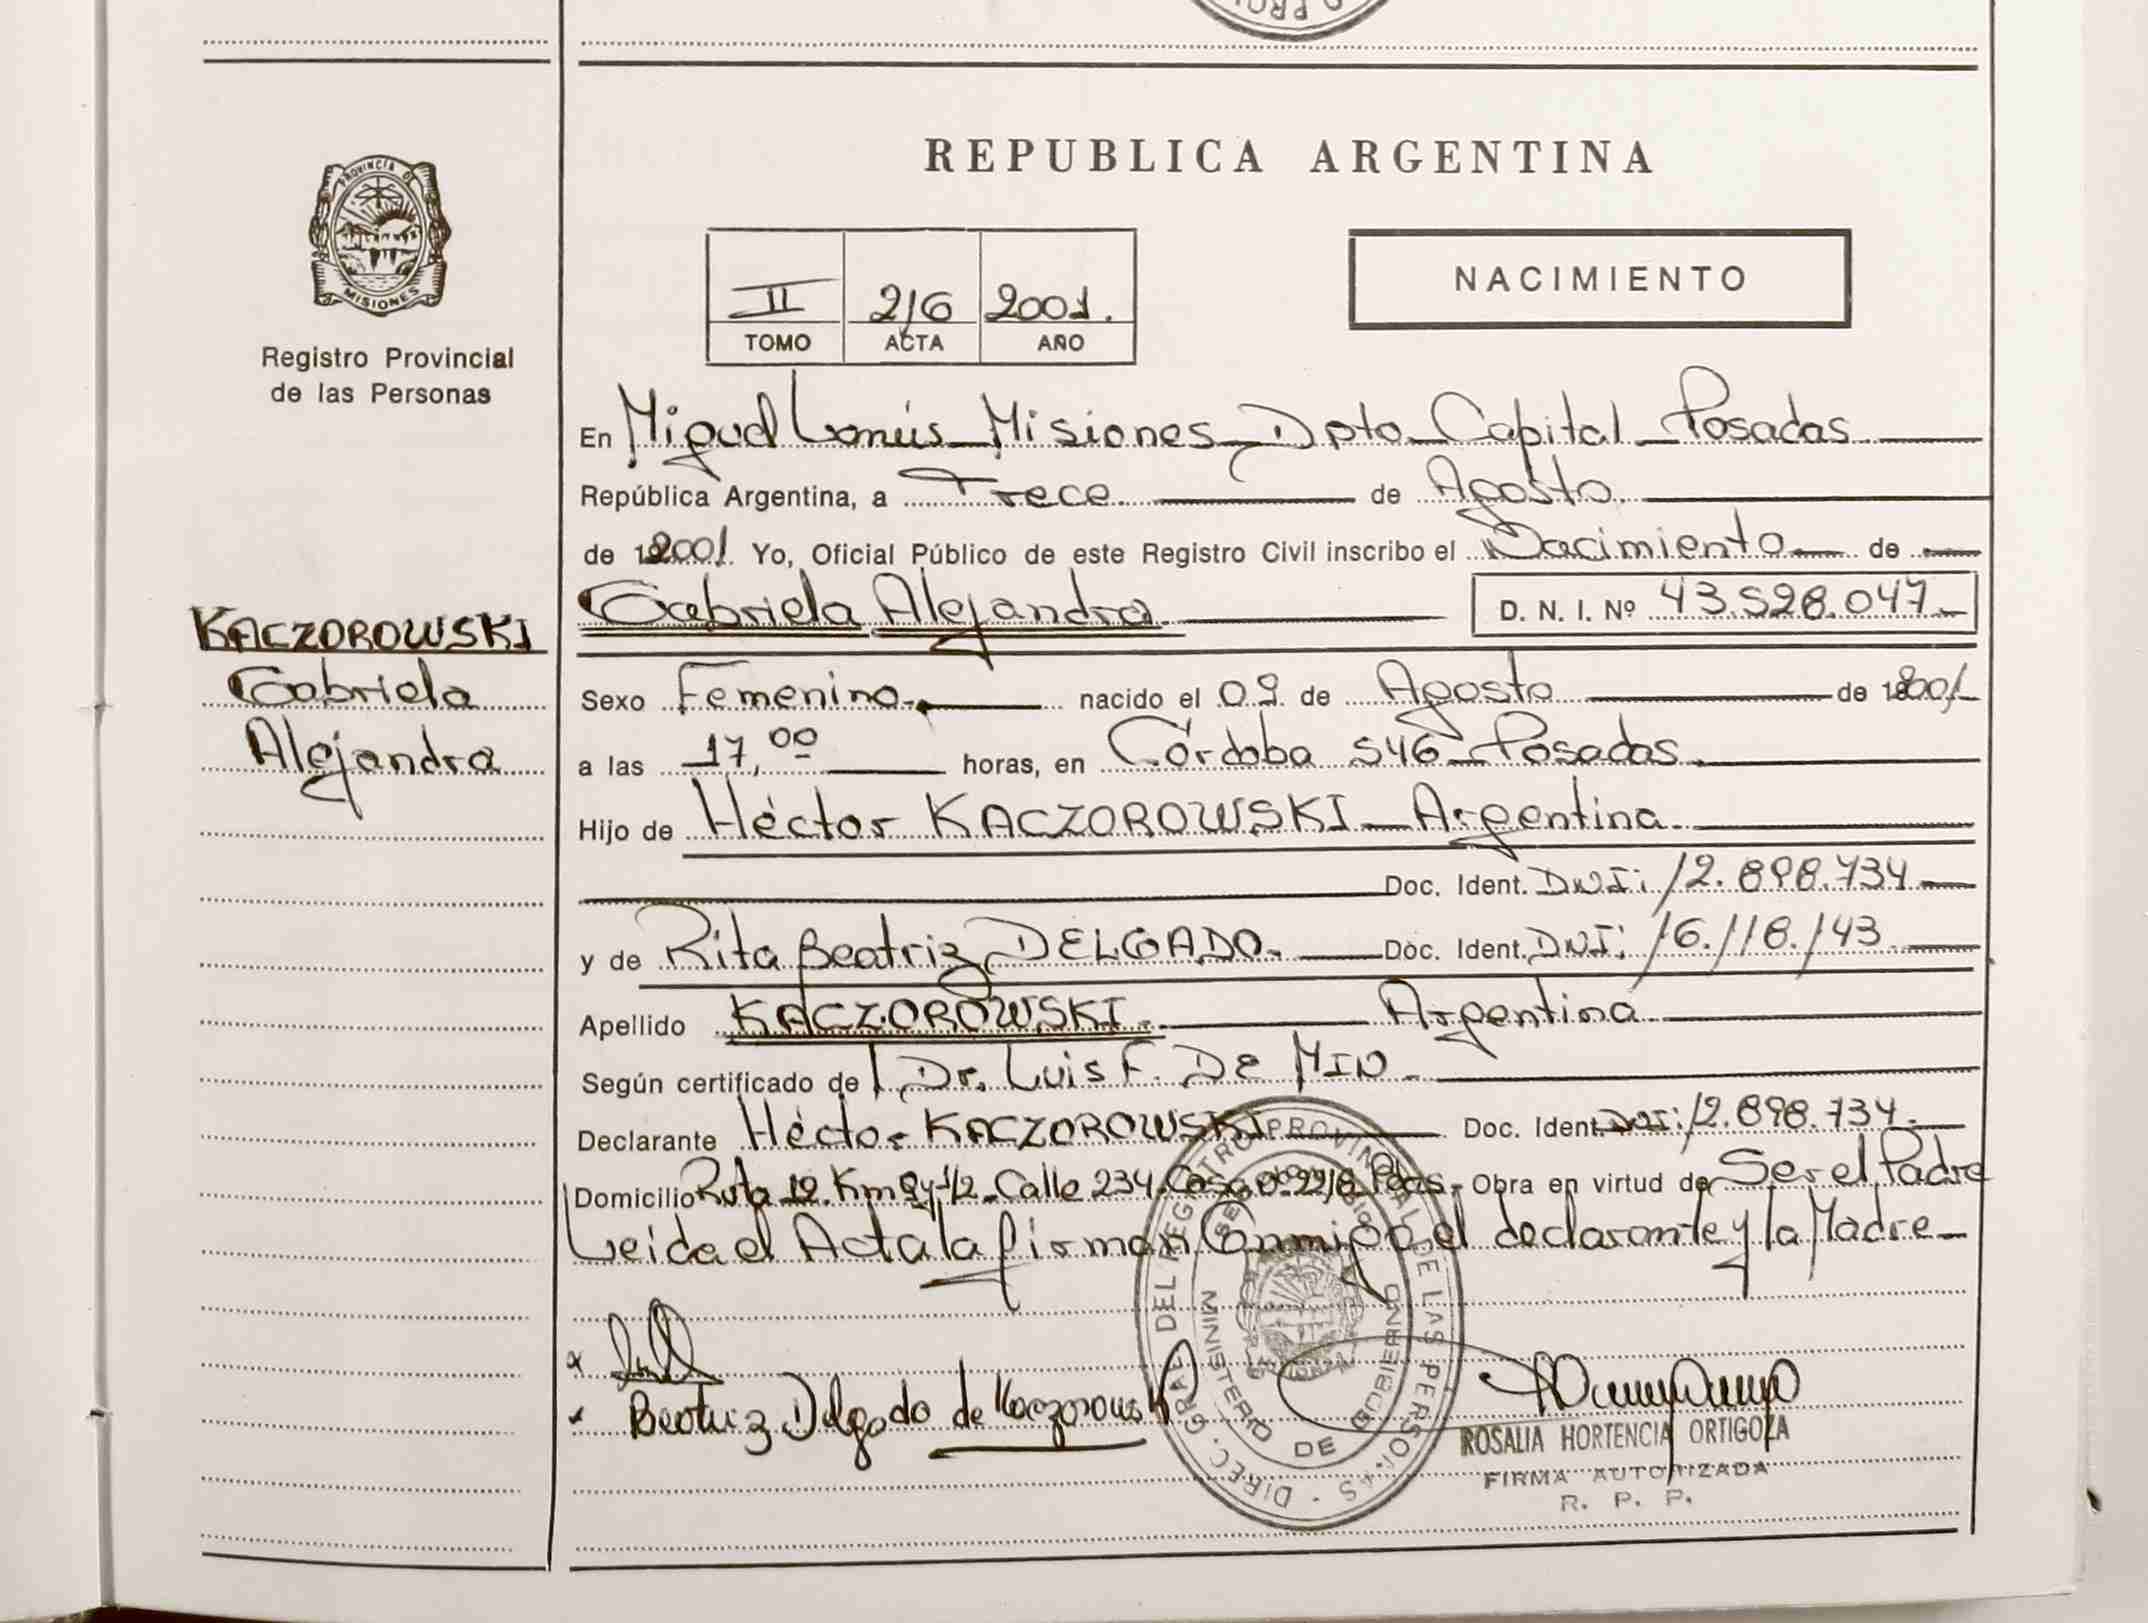 REPUBLICA ARGENTINA
PROVINCIA DE MISIONES
Registro Provincial
de las Personas
II 216 2001.
TOMO ACTA AÑO
NACIMIENTO
En Miguel Lanús Misiones Dpto Capital Posadas
República Argentina, a Trece de Agosto
de 2001. Yo, Oficial Público de este Registro Civil inscribo el Nacimiento de
Gabriela Alejandra D. N. I. Nº 43.528.047
KACZOROWSKI
Gabriela
Alejandra
Sexo Femenino nacido el 09 de Agosto de 2001
a las 17,00 horas, en Córdoba 546 Posadas.
Hijo de Héctor KACZOROWSKI Argentina
Doc. Ident. DNI: 12.898.734
y de Rita Beatriz DELGADO. Doc. Ident. DNI: 16.118.143
Apellido KACZOROWSKI Argentina
Según certificado de Dr. Luis F. DE MIN
Declarante Héctor KACZOROWSKI Doc. Ident. DNI: 12.898.734.
Domicilio Ruta 12. Km 9 y 1/2 Calle 234 Casa Pdas Obra en virtud de Ser el Padre
Leida el Acta la firman Conmigo el declarante y la Madre
Beatriz Delgado de Kaczorowski
DIREC. GRAL. DEL REGISTRO PROVINCIAL DE LAS PERSONAS
MINISTERIO DE GOBIERNO
ROSALIA HORTENCIA ORTIGOZA
FIRMA AUTORIZADA
R. P. P.